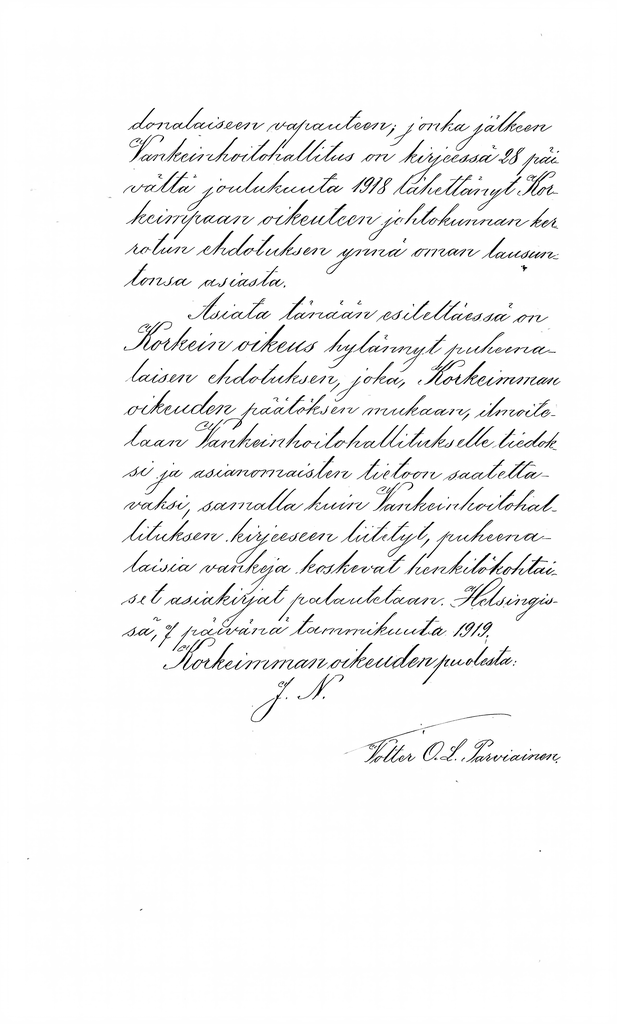 donalaiseen vapauteen; jonka jälkeen
Vankeinhoitohallitus on kirjeessä 28 päi-
vältä joulukuuta 1918 lähettänyt Kor-
keimpaan oikeuteen johtokunnan ker-
rotun ehdotuksen ynnä oman lausun-
tonsa asiasta.
Asiata tänään esiteltäessä on
Korkein oikeus hylännyt puheena-
laisen ehdotuksen, joka, Korkeimman
oikeuden päätöksen mukaan, ilmoite-
taan Vankeinhoitohallitukselle tiedok-
si ja asianomaisten tietoon saatetta-
vaksi, samalla kuin Vankeinhoitohal-
lituksen kirjeeseen liitetyt, puheena-
laisia vankeja koskevat henkilökohtai-
set asiakirjat palautetaan. Helsingis-
sä, 7 päivänä tammikuuta 1919.
Korkeimman oikeuden puolesta:
J. N.
Volter O. L. Parviainen.